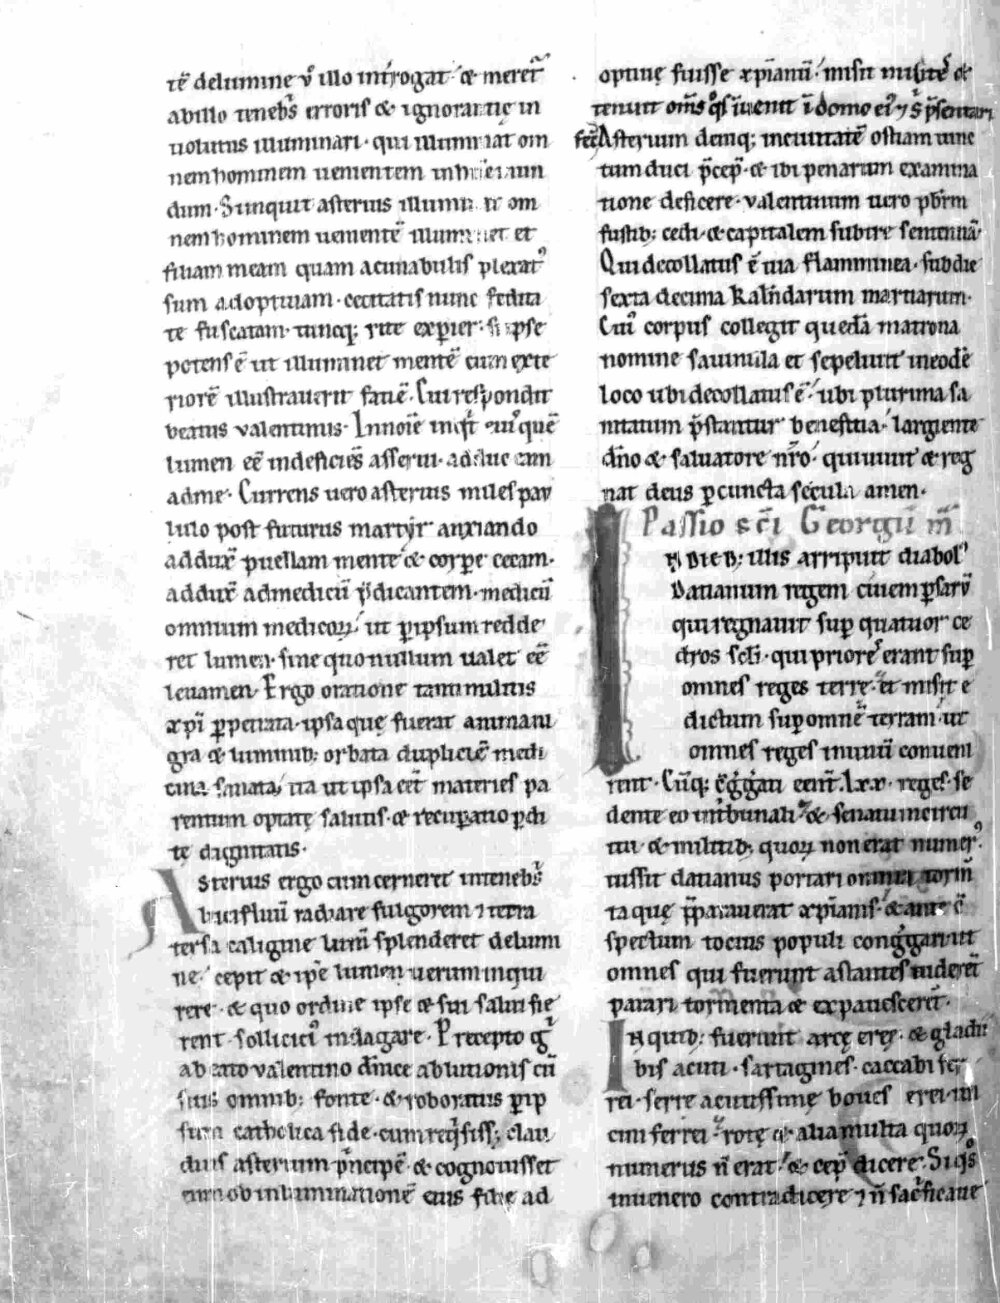 tē de lumine v̄ illo introgat᷑ & meret᷑
ab illo tenebꝭ erroris & ignorantię in
uolutus illuminari· qui illuminat om
nem hominem uenientem in hunc mun
dum· Si inquit asterius illuminat om
nem hominem uenientē illuminet et
filiam meam quam a cunabulis plerat᷒
sum adoptiuam· cecitatis nunc fedita
te fuscatam· tuncq; rite exꝑier· si ipse
potens ē ut illuminet mentē cum exte
riorē illustrauerit faciē· Cui respondit
beatus valentinus· In noīe inq̄t eiꝰ quē
lumen eē indeficiēs asserui· adduc eam
ad me· Currens uero asterius miles pau
lulo post futurus martyr anxiando
adduxᷓ puellam mente & corꝑe cecam·
adduxᷓ ad medicū p̄dicantem· medicū
omnium medicoꝝ ut ꝑ ipsum redde
ret lumen· sine quo nullum ualet eē
leuamen· Ergo oratione tanti militis
xp̄i ꝑpetrata· ipsa quę fuerat animam
gra & luminib; orbata duplici ē medi
cina sanata, ita ut ipsa eēt materies pa
rentum optatę salutis· & recuꝑatio ꝑdi
tę dignitatis·
Asterius ergo cum cerneret in tenebꝭ
lucifluū radiare fulgorem ⁊ tetra
tersa caligine lum̄ splenderet de lumi
ne· cepit & ip̄e lumen uerum inqui
rere· & quo ordine ipse & sui salui fie
rent sollicitꝰ indagare· Precepto g̊
a beato valentino dn̄ice ablutionis cū
suis omnib; fonte· & roboratus ꝑ ip
sum catholica fide· cum req̇siss; clau
dius asterium ṗncipē & cognouisset
eum ob inluminationē eius filię ad
optiuę fuisse xp̄ianū· misit milite᷒ &
tenuit om̄s q̊s īuenit ī domo eiꝰ ⁊ s̄ p̄sentari
fec̄· Asterium deniq; in ciuitatē ostiam uinc
tum duci p̄cep̄· & ibi penarum examina
tione deficere· valentinum uero pbr̄m
fustib; cedi· & capitalem subire sententiā·
Qui decollatus ē uia flamminea· sub die
sexta decima kalendarum martiarum·
Cuiꝰ corpus collegit quedā matrona
nomine sauinila et sepeliuit in eodē
loco ubi decollatus ē· ubi plurima sa
nitatum p̄stantur benefitia· largiente
dn̄o & saluatore nr̄o· qui uiuit & reg
nat deus ꝑ cuncta secula amen·
Passio sc̄i Georgii m̄
IN dieb; illis arripuit diabolꝰ
Datianum regem ciuem ꝑsarū
qui regnauit suꝑ quatuor ce
dros scl̄i· qui priore᷒ erant suꝑ
omnes reges terrę· et misit e
dictum suꝑ omnē terram· ut
omnes reges in unū conueni
rent· Cūq; c̄g̊gati eent̄ lxx· reges· se
dente eo in tribunali· & senatu metreti
tui & militib; quoꝝ non erat numerꝰ·
iussit datianus portari omnia torm̄
ta quę p̄parauerat xp̄ianis· & ante c̄
spectum tocius populi cong̊gari ut
omnes qui fuerunt astantes uiderēt
parari tormenta & expauescerēt·
In quib; fuerunt arcę eręę· & gladii
bis acuti· sartagines· caccabi fer
rei· serre acutissimę boues erei· un
cini ferrei· rotę & alia multa quoꝝ
numerus n̄ erat· & cep̄ dicere· Si q̊s
inuenero contradicere ⁊ n̄ sacrificare